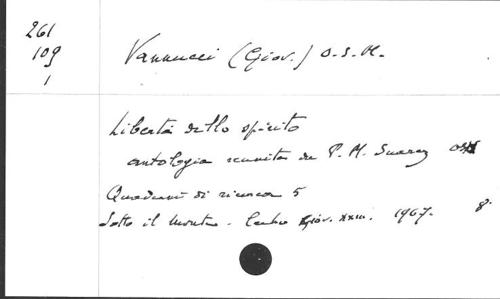 261
109
1
Vannucci (Giov.) O.S.M.
Libertà dello spirito
antologia riunita da P. M. Suarez
Quaderni di ricerca 5
Sotto il Monte - Centro Giov. XXIII. 1967. 8°